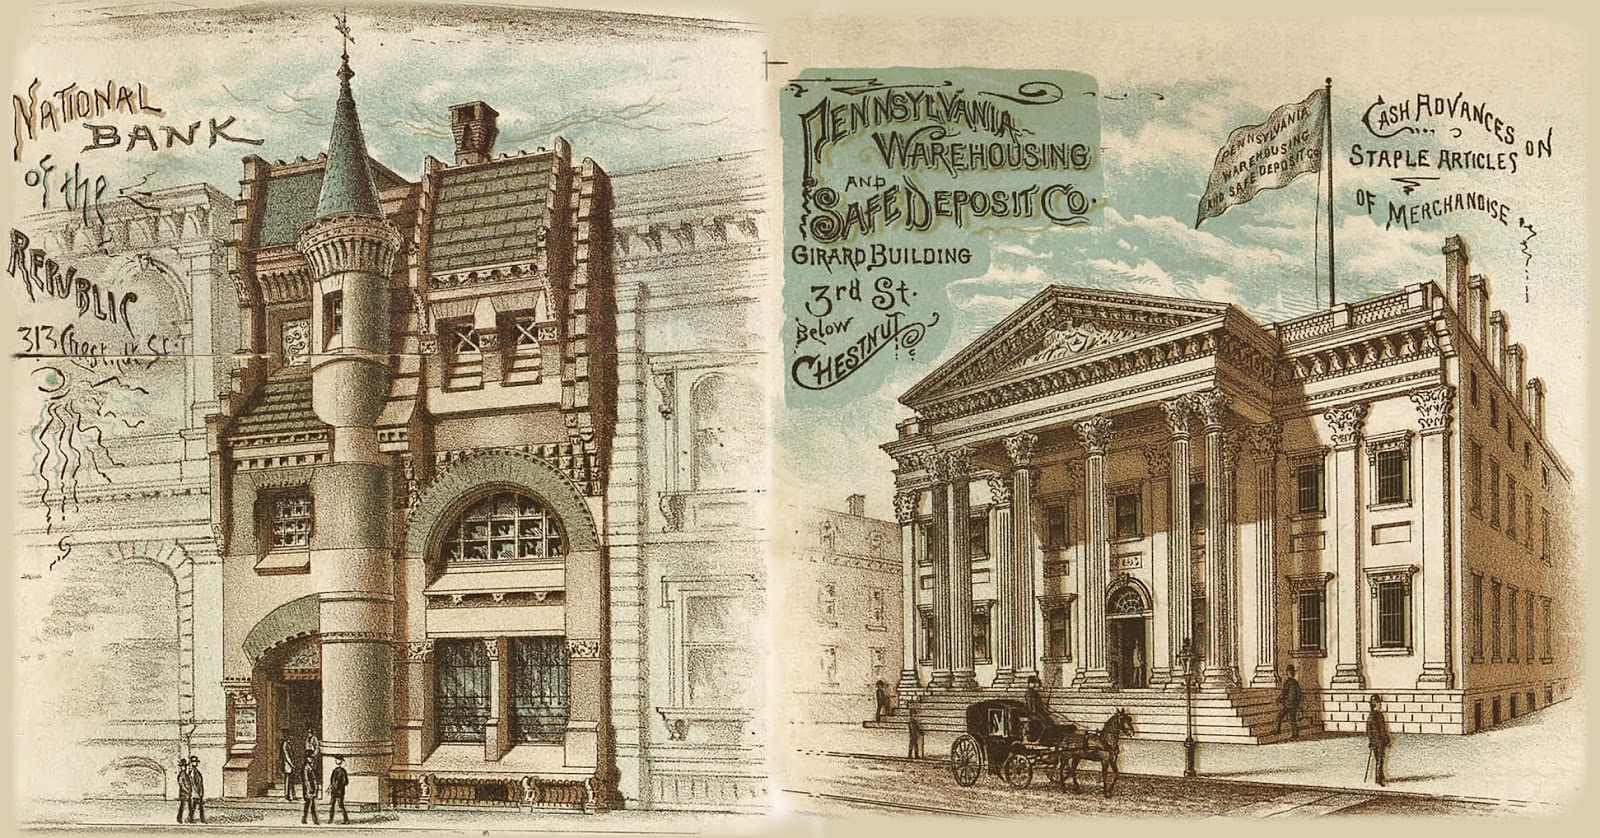 NATIONAL
BANK
of the
REPUBLIC
313 Chestnut St.
PENNSYLVANIA
WAREHOUSING
AND
SAFE DEPOSIT CO.
GIRARD BUILDING
3rd St.
Below
CHESTNUT
PENNSYLVANIA
WAREHOUSING
AND SAFE DEPOSIT CO
CASH ADVANCES ON
STAPLE ARTICLES
OF MERCHANDISE